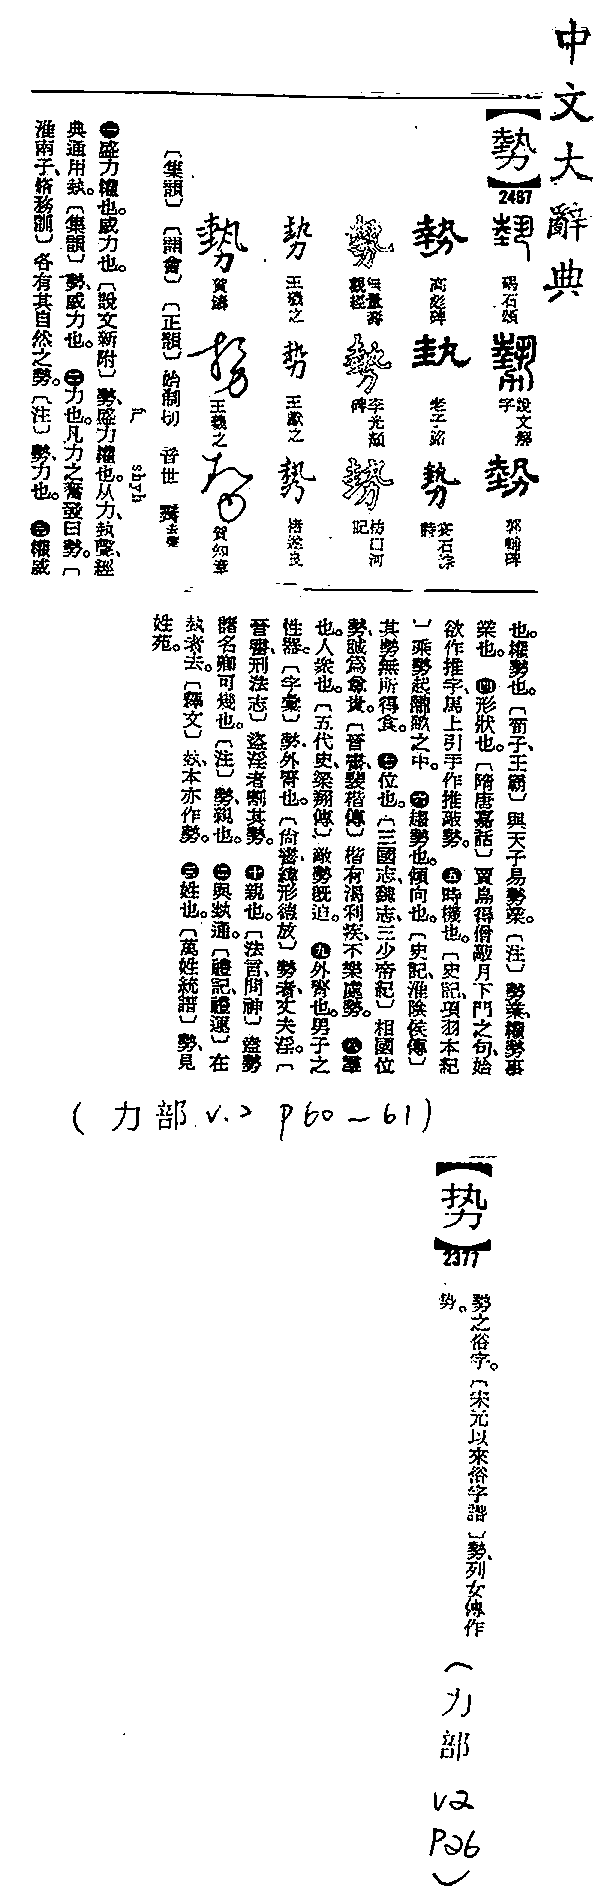 中文大辭典
【勢】
2467
勢 碣石頌
勢 說文解字
勢 郭輔碑
勢 高彪碑
勢 老子銘
勢 無量壽觀經
勢 李光顏碑
勢 王羲之
勢 王獻之
勢 褚遂良
勢 王羲之
勢 賀知章
〔集韻〕〔韻會〕〔正韻〕始制切 音世 霽去聲
shyh
㊀盛力權也。威力也。〔說文新附〕勢、盛力權也。从力、埶聲、經
典通用埶。〔集韻〕勢、威力也。㊁力也。凡力之奮發曰勢。〔
淮南子、脩務訓〕各有其自然之勢。〔注〕勢、力也。㊂權威
也。權勢也。〔荀子、王霸〕與天子易勢業。〔注〕勢業、權勢事
業也。㊃形狀也。〔隋唐嘉話〕賈島得僧敲月下門之句、始
欲作推字、馬上引手作推敲勢。㊄時機也。〔史記、項羽本紀
〕乘勢起隴畝之中。㊅趨勢也。傾向也。〔史記、淮陰侯傳〕
其勢無所得食。㊆位也。〔三國志、魏志、三少帝紀〕相國位
勢、誠為尊貴。〔晉書、裴楷傳〕楷有渴利疾、不樂處勢。㊇羣
也。人衆也。〔五代史、梁翔傳〕敵勢旣迫。㊈外腎也。男子之
性器。〔字彙〕勢、外腎也。〔尚書緯、形德放〕勢者、丈夫淫。〔
晉書、刑法志〕盜淫者割其勢。㊉親也。〔法言、問神〕盍勢
諸名卿可幾也。〔注〕勢、親也。㊁與埶通。〔禮記、禮運〕在
埶者去。〔釋文〕埶、本亦作勢。㊂姓也。〔萬姓統譜〕勢、見
姓苑。
(力部 v.2 p60~61)
【势】
2377
勢之俗字。〔宋元以來俗字譜〕勢、列女傳作
势。
(力部 v2 p26)